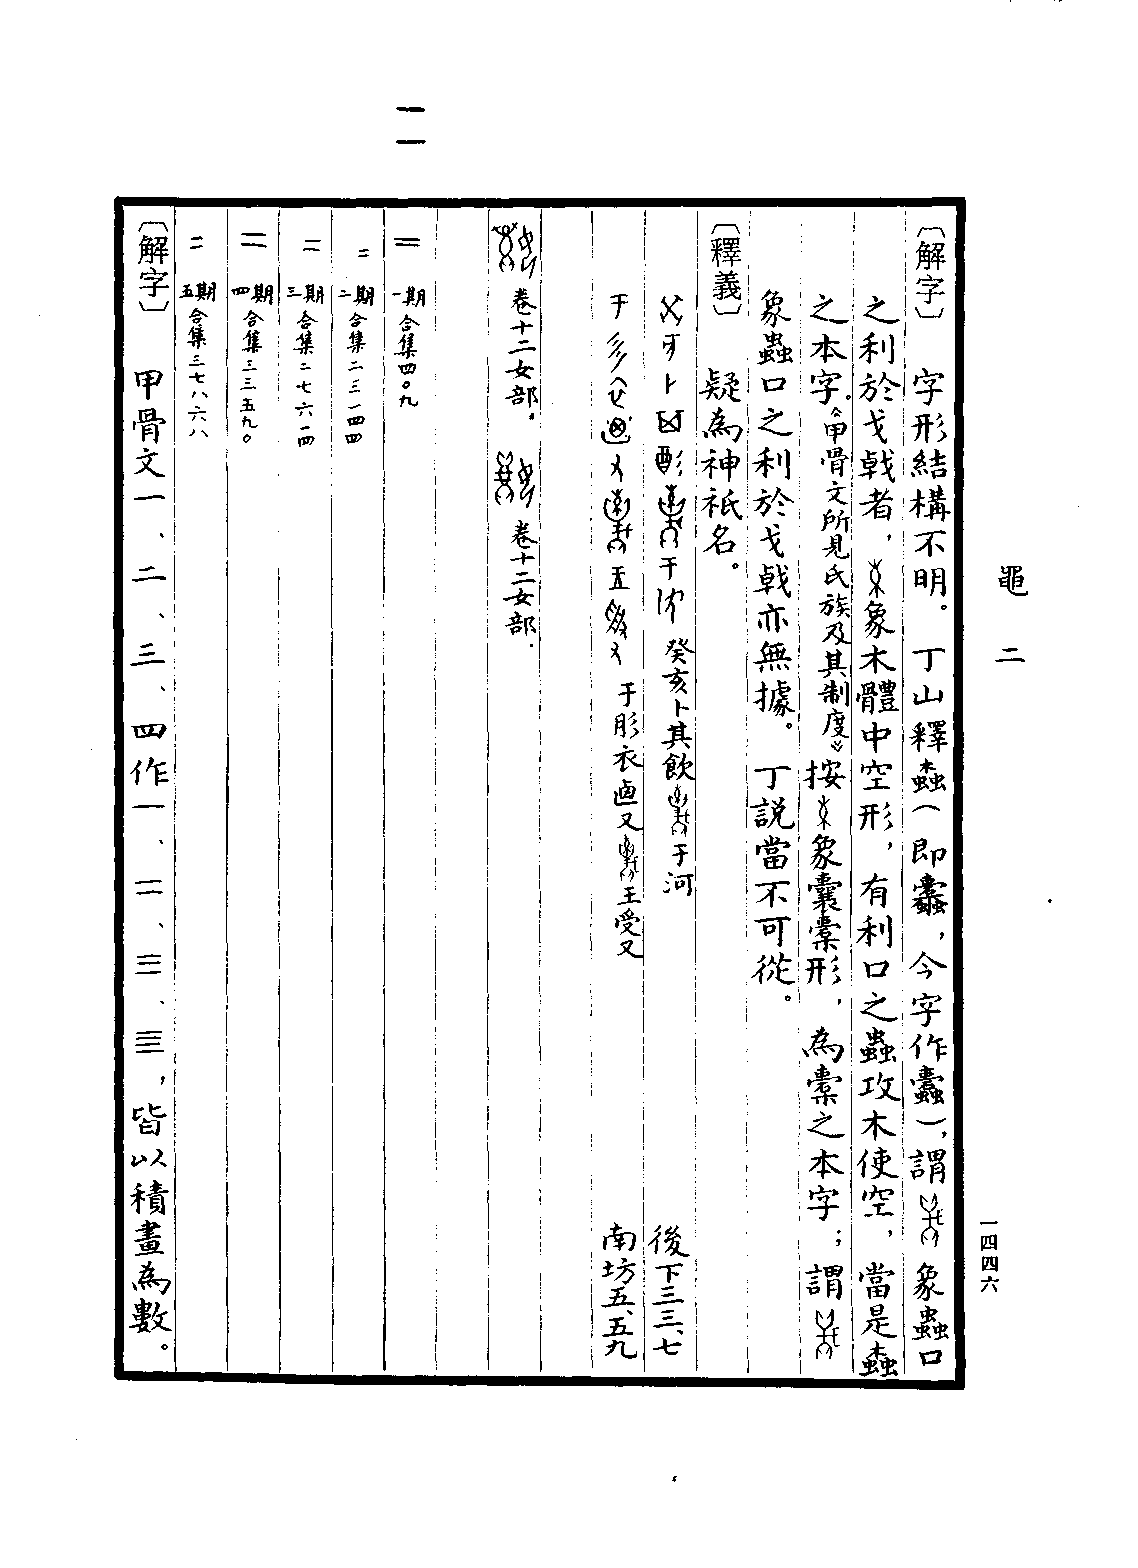 黽 二
一四四六
〔解字〕 字形結構不明。丁山釋螙(即蠹,今字作蠹),謂 象蟲口
之利於戈戟者, 象木體中空形,有利口之蟲攻木使空,當是螙
之本字。《甲骨文所見氏族及其制度》按 象囊橐形,為橐之本字;謂
象蟲口之利於戈戟亦無據。丁說當不可從。
〔釋義〕 疑為神祇名。
癸亥卜其飲 于河 後下三三、七
于肜衣卣又 王受又 南坊五、五九
卷十二女部。 卷十二女部.
二
二 一期 合集四〇九
二 二期 合集二三一四四
二 三期 合集二七六一四
二 四期 合集三三五九〇
二 五期 合集三七八六八
〔解字〕 甲骨文一、二、三、四作一、二、三、亖,皆以積畫為數。